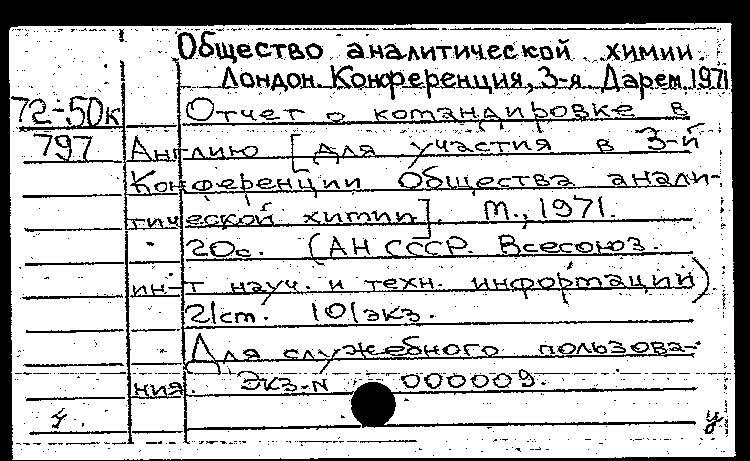 Общество аналитической химии.
Лондон. Конференция, 3-я. Дарем. 1971
72-50к Отчет о командировке в
797 Англию [для участия в 3-й
Конференции Общества анали-
тической химии]. М., 1971.
20с. (АН СССР. Всесоюз.
ин-т науч. и техн. информации)
21 ст. 101 экз.
Для служебного пользова-
ния. Экз-N 000009.
4. у